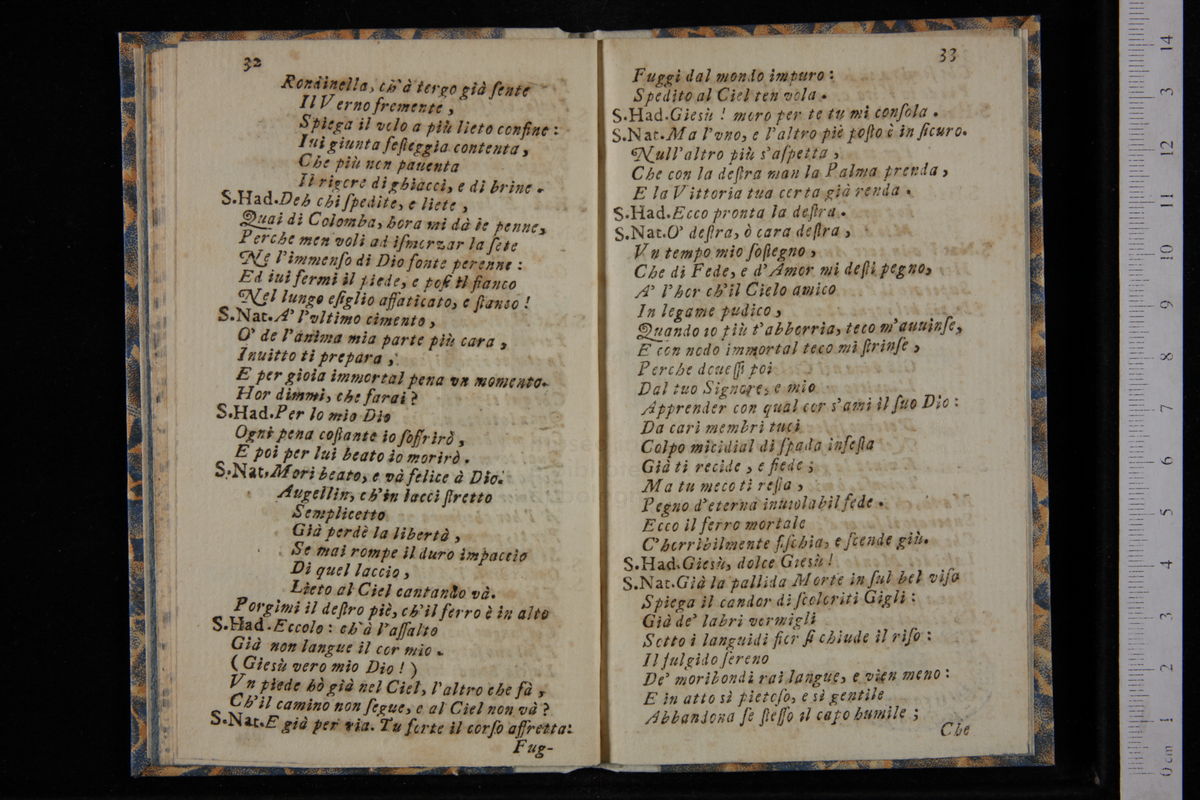 32
Rondinella, ch'à tergo già ſente
Il Verno fremente,
Spiega il volo a più lieto confine:
Iui giunta feſteggia contenta,
Che più non pauenta
Il rigore di ghiacci, e di brine.
S.Had. Deh chi ſpedite, e liete,
Quai di Colomba, hora mi dà le penne,
Perche men voli ad iſmorzar la ſete
Ne l'immenſo di Dio fonte perenne:
Ed iui fermi il piede, e poſi il fianco
Nel lungo eſiglio affaticato, e ſtanco!
S.Nat. A' l'vltimo cimento,
O' de l'anima mia parte più cara,
Inuitto ti prepara,
E per gioia immortal pena vn momento.
Hor dimmi, che farai?
S.Had. Per lo mio Dio
Ogni pena coſtante io ſoffrirò,
E poi per lui beato io morirò.
S.Nat. Mori beato, e và felice à Dio.
Augellin, ch'in lacci ſtretto
Semplicetto
Già perdè la libertà,
Se mai rompe il duro impaccio
Di quel laccio,
Lieto al Ciel cantando và.
Porgimi il deſtro piè, ch'il ferro è in alto
S.Had. Eccolo: ch'à l'aſſalto
Già non langue il cor mio.
(Giesù vero mio Dio!)
Vn piede hò già nel Ciel, l'altro che fà,
Ch'il camino non ſegue, e al Ciel non và?
S.Nat. E già per via. Tu forte il corſo affretta:
Fug-
33
Fuggi dal mondo impuro:
Spedito al Ciel ten vola.
S.Had. Giesù! moro per te tu mi conſola.
S.Nat. Ma l'vno, e l'altro piè poſto è in ſicuro.
Null'altro più s'aſpetta,
Che con la deſtra man la Palma prenda,
E la Vittoria tua certa già renda.
S.Had. Ecco pronta la deſtra.
S.Nat. O' deſtra, ò cara deſtra,
Vn tempo mio ſoſtegno,
Che di Fede, e d'Amor mi deſti pegno,
A' l'hor ch'il Cielo amico
In legame pudico,
Quando io più t'abborria, teco m'auuinſe,
E con nodo immortal teco mi ſtrinſe,
Perche doueſſi poi
Dal tuo Signore, e mio
Apprender con qual cor s'ami il ſuo Dio:
Da cari membri tuoi
Colpo micidial di ſpada infeſta
Già ti recide, e fiede;
Ma tu meco ti reſta,
Pegno d'eterna inuiolabil fede.
Ecco il ferro mortale
C'horribilmente fiſchia, e ſcende giù.
S.Had. Giesù, dolce Giesù!
S.Nat. Già la pallida Morte in ſul bel viſo
Spiega il candor di ſcoloriti Gigli:
Già de' labri vermigli
Sotto i languidi fior ſi chiude il riſo:
Il fulgido ſereno
De' moribondi rai langue, e vien meno:
E in atto sì pietoſo, e sì gentile
Abbandona ſe ſteſſo il capo humile;
Che
0 cm 1 2 3 4 5 6 7 8 9 10 11 12 13 14